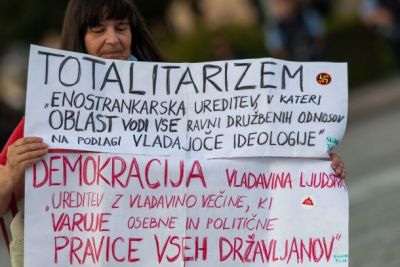 TOTALITARIZEM
„ENOSTRANKARSKA UREDITEV, V KATERI
OBLAST VODI VSE RAVNI DRUŽBENIH ODNOSOV
NA PODLAGI VLADAJOČE IDEOLOGIJE"
DEMOKRACIJA VLADAVINA LJUDSTVA
"UREDITEV Z VLADAVINO VEČINE, KI
VARUJE OSEBNE IN POLITIČNE
PRAVICE VSEH DRŽAVLJANOV"